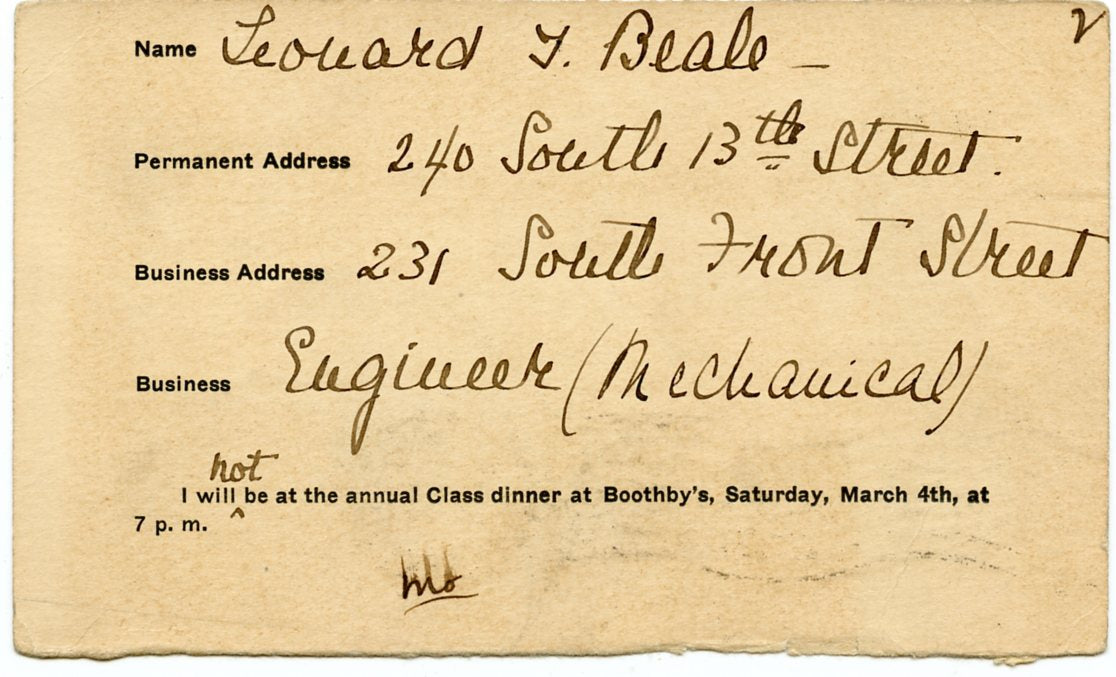 Name Leonard T. Beale –
Permanent Address 240 South 13th Street.
Business Address 231 South Front Street
Business Engineer (Mechanical)
not
I will ^ be at the annual Class dinner at Boothby's, Saturday, March 4th, at
7 p. m.